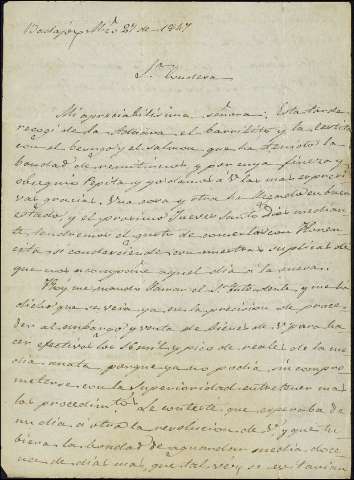 Badajoz Mzo 27 de 1847
Sra Tudera
Mi apreciabilisima señora: Esta tarde
recogí de la Aduana el barrilito y la cestita
con el Congo y el salmon que ha tenido la
bondad de remitirnos y por cuya fineza y
obsequio Pepita y yo damos á V. las mas expresi
vas gracias. Una cosa y otra ha llegado en buen
estado, y el proximo Jueves Santo Dios median
te, tendremos el gusto de comerlas con
esta si condesciende con nuestras suplicas de
que nos acompañe aquel dia á la mesa.
Hoy me mandó llamar el Sr Intendente, y me ha
dicho que se veia ya en la precision de proce
der al embargo y venta de bienes de V. para ha
cer efectivos los mil y pico de reales de la me
dia anata, porque ya no podia sin compro
meterse con la Superioridad entretener mas
los procedimtos. Le contesté que esperaba de
un dia á otro la resolucion de V. y que tu
biera la bondad de aguardar media doce
na de dias mas, que tal vez se evitarian